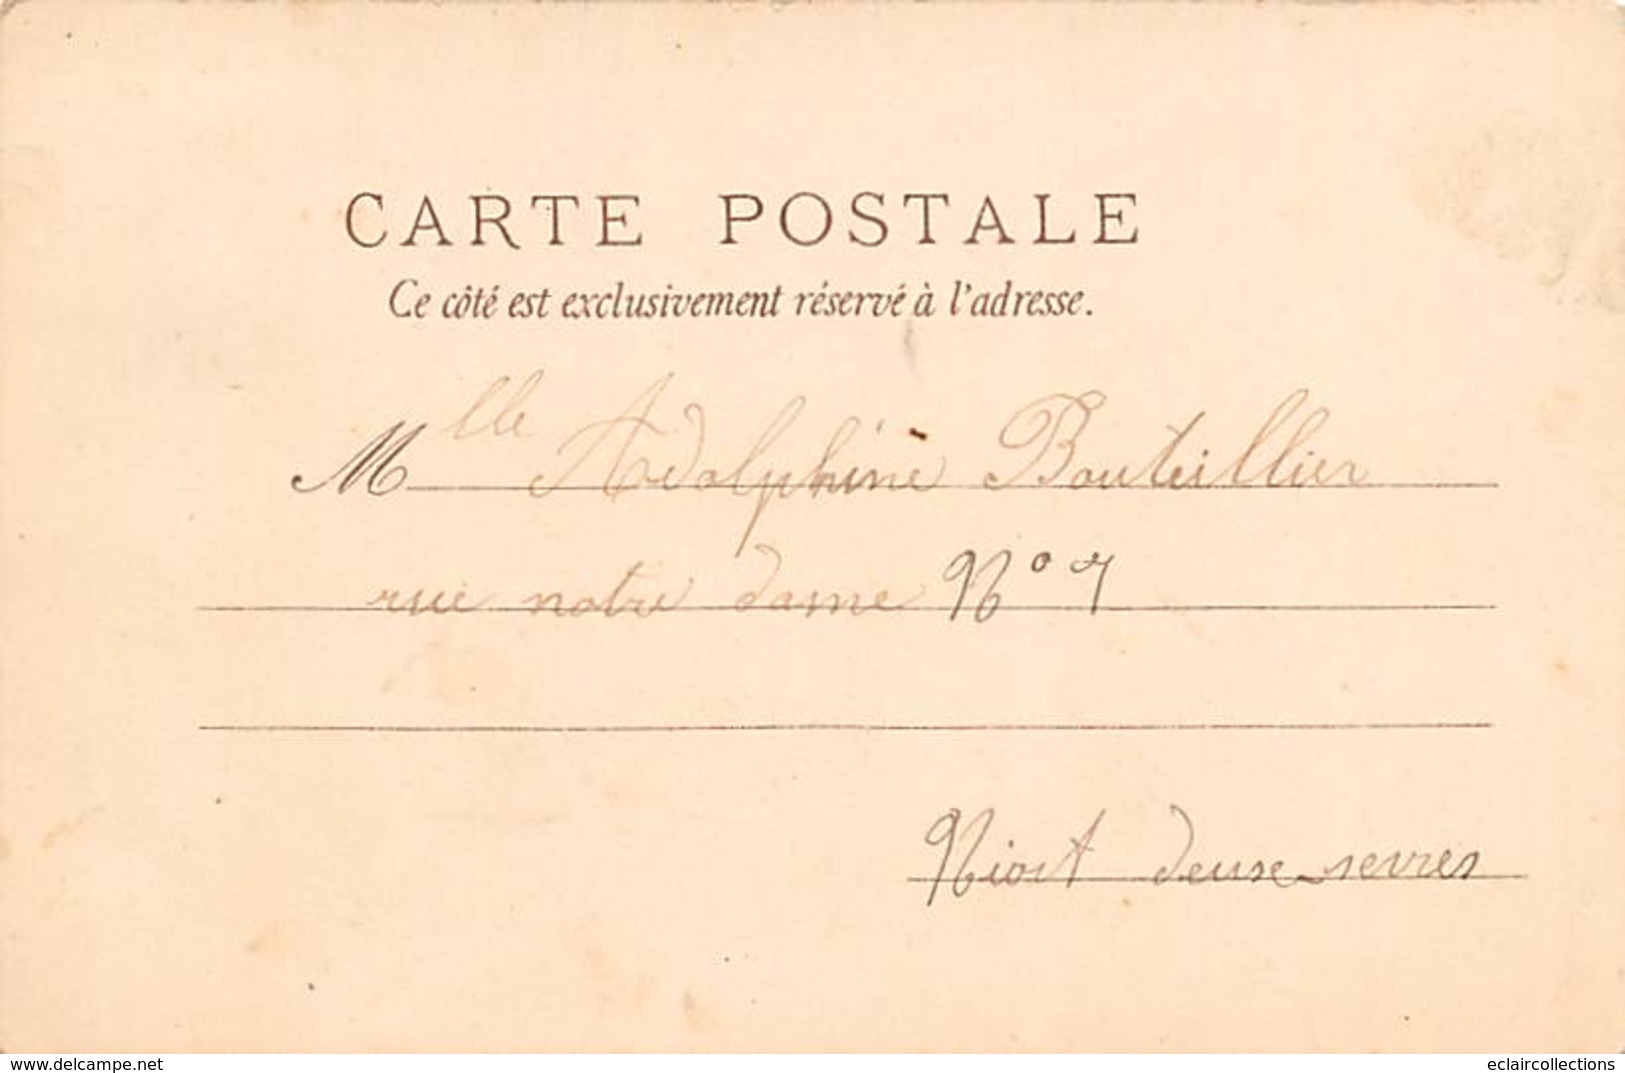 CARTE POSTALE
Ce côté est exclusivement réservé à l'adresse.
Mlle Adolphine Bouteillier
rue notre dame No 7
Niort deuxe sevres
www.delcampe.net
eclaircollections